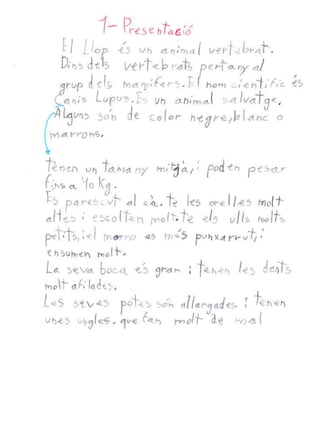 1-Presentació
El Llop és un animal vertebrat.
Dins dels vertebrats pertany al
grup dels mamífers. El nom científic és
Canis Lupus. Es un animal salvatge.
Alguns són de color negre, blanc o
marrons.
tenen un tamany mitjà, i poden pesar
fins a 40 Kg.
Es parescut al cà. te les orelles molt
altes i escolten molt. te els ulls molts
petits, i el morro es més punxarrut, i
ensumen molt.
La seva boca és gran i tenen les dents
molt afilades.
Les seves potes són allargades i tenen
unes ungles. que fan molt de mal